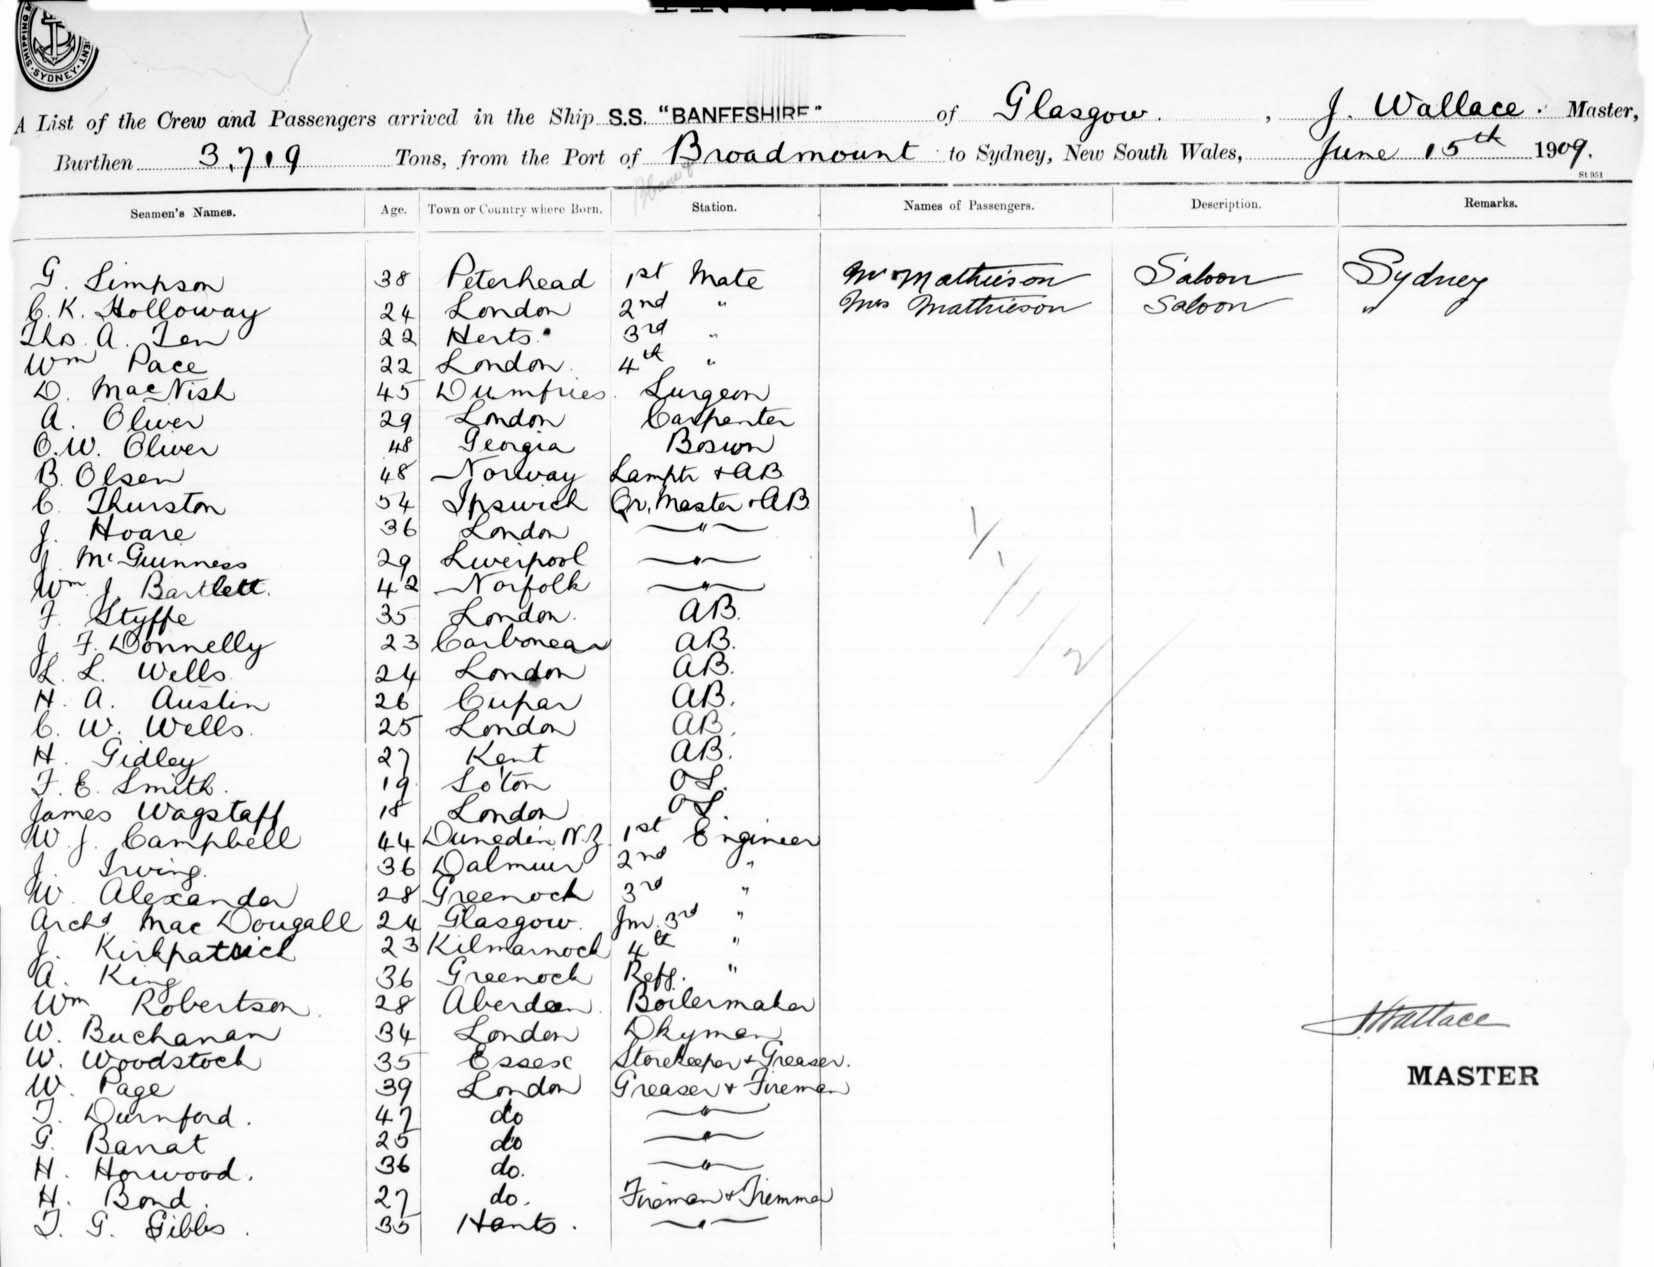 SYDNEY
A List of the Crew and Passengers arrived in the Ship S.S. "BANFFSHIRE" of Glasgow. , J. Wallace. Master,
Burthen 3,719 Tons, from the Port of Broadmount to Sydney, New South Wales, June 15th 1909.
St 951
Seamen's Names. Age. Town or Country where Born. Station. Names of Passengers. Description. Remarks.
G. Simpson 38 Peterhead 1st Mate Mr Mathieson Saloon Sydney
C. K. Holloway 24 London 2nd " Mrs Mathieson Saloon "
Thos. A. Ten 22 Herts. 3rd "
Wm Pace 22 London 4th "
D. MacNish 45 Dumfries. Surgeon
A. Oliver 29 London Carpenter
O.W. Oliver 48 Georgia Boswn
B. Olsen 48 Norway Lamptr + AB
C. Thurston 54 Ipswich Qr. Master + AB
J. Hoare 36 London "
J. McGuinness 29 Liverpool "
Wm. J. Bartlett. 42 Norfolk "
F. Styffe 35 London. AB.
J. F. Donnelly 23 Carbonear AB.
L. L. Wells 24 London AB.
H. A. Austin 26 Cupar AB.
C. W. Wells. 25 London AB.
H. Gidley 27 Kent AB.
F. E. Smith. 19 So'ton OS.
James Wagstaff 18 London OS
W. J. Campbell 44 Dunedin N.Z. 1st Engineer
J. Irving. 36 Dalmuir 2nd "
W. Alexander 28 Greenock 3rd "
Archd MacDougall 24 Glasgow. Jnr. 3rd "
J. Kirkpatrick 23 Kilmarnock 4th "
A. King 36 Greenock Refg. "
Wm Robertson. 28 Aberdeen Boilermaker
W. Buchanan 34 London Dkyman
J Wallace
W. Woodstock 35 Essex Storekeeper + Greaser.
MASTER
W. Page 39 London Greaser + Fireman
T. Durnford. 47 do "
G. Barrat 25 do "
H. Horwood. 36 do. "
H. Bond. 27 do. Fireman + Trimmer
T. G. Gibbs. 35 Hants. "